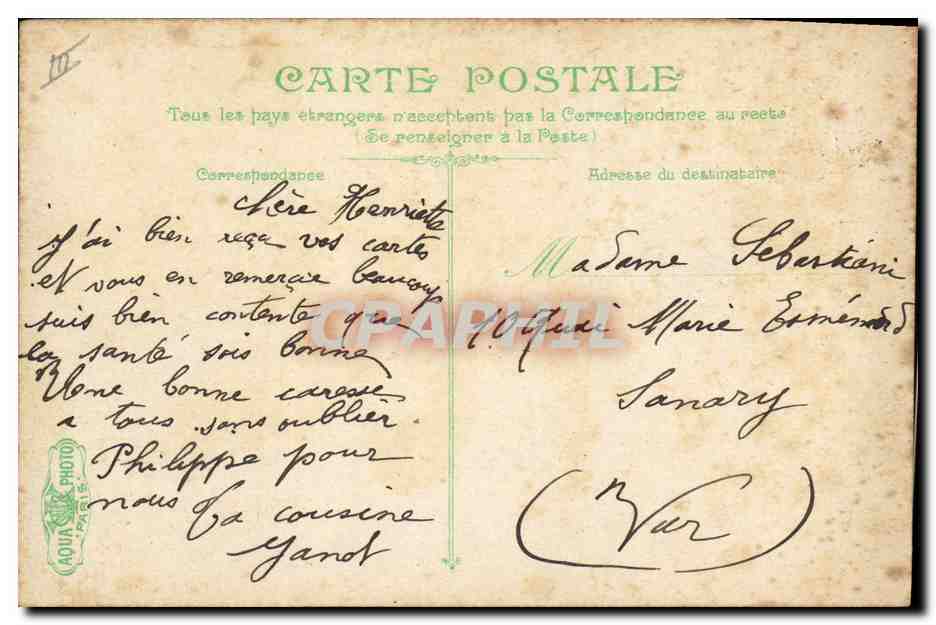 III
CARTE POSTALE
Tous les pays étrangers n'acceptent pas la Correspondance au recto
(Se renseigner à la Poste)
Correspondance
Adresse du destinataire
chère Henriette
J'ai bien reçu vos cartes
et vous en remercie beaucoup
suis bien contente que
la santé sois bonne
Une bonne caresse
a tous sans oublier
Philippe pour
nous Ta cousine
Janot
Madame Sebastiani
10 Quai Marie Esménard
Sanary
(Var)
CPAPHIL
AQUA PHOTO
PARIS